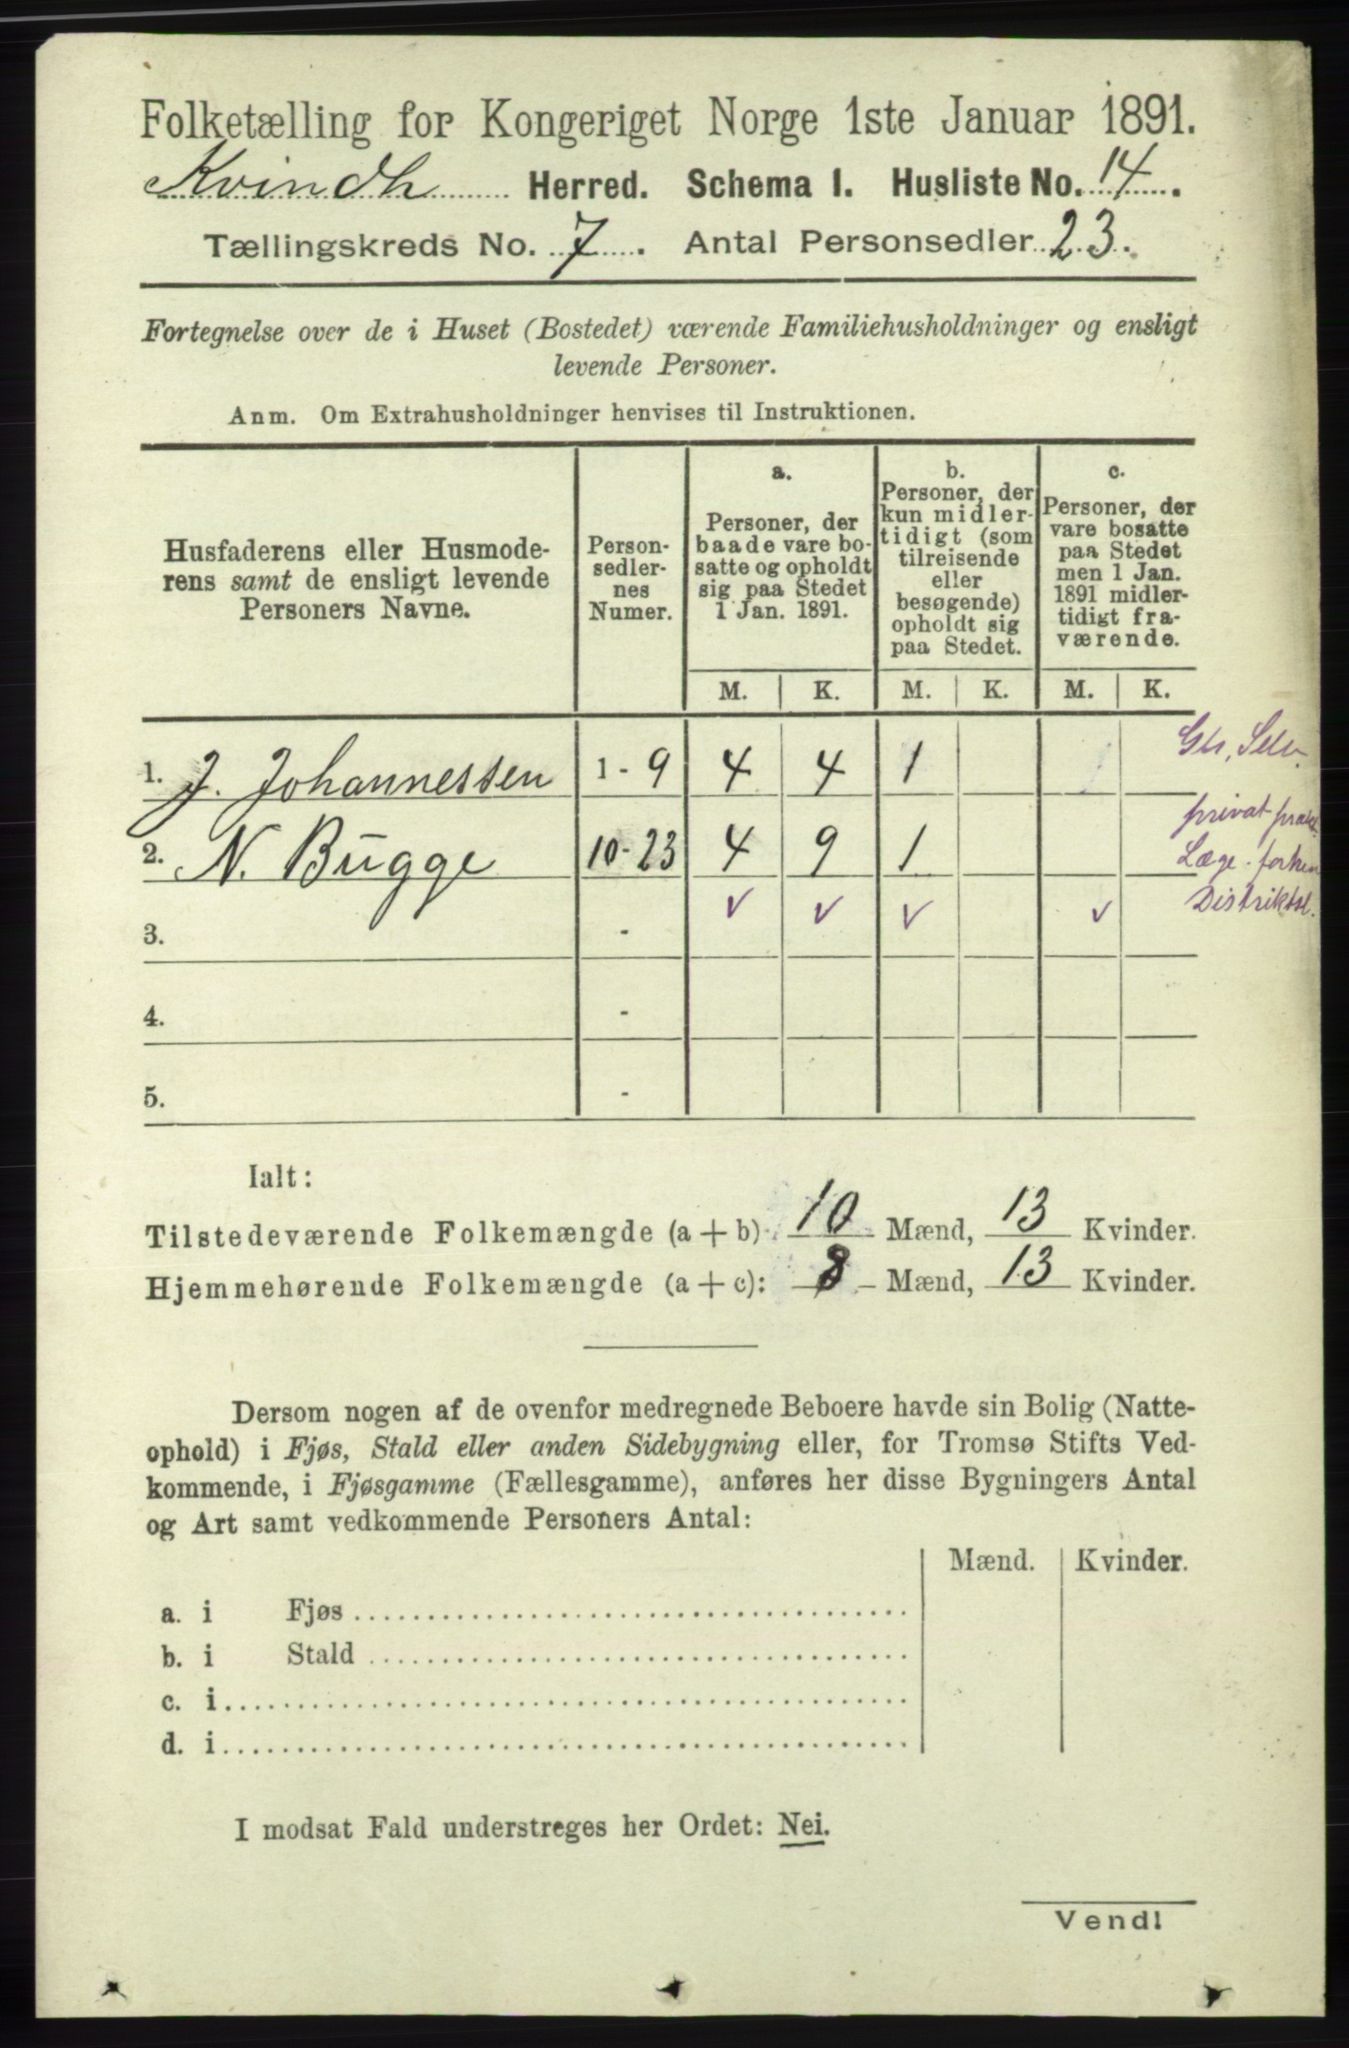 Folketælling for Kongeriget Norge 1ste Januar 1891.
Kvindh Herred. Schema I. Husliste No. 14.
Tællingskreds No. 7. Antal Personsedler 23.
Fortegnelse over de i Huset (Bostedet) værende Familiehusholdninger og ensligt
levende Personer.
Anm. Om Extrahusholdninger henvises til Instruktionen.
Husfaderens eller Husmode-
rens samt de ensligt levende
Personers Navne.
Person-
sedler-
nes
Numer.
a.
Personer, der
baade vare bo-
satte og opholdt
sig paa Stedet
1 Jan. 1891.
b.
Personer, der
kun midler-
tidigt (som
tilreisende
eller
besøgende)
opholdt sig
paa Stedet.
c.
Personer, der
vare bosatte
paa Stedet
men 1 Jan.
1891 midler-
tidigt fra-
værende.
M. K. M. K. M. K.
1. J. Johannessen 1 - 9 4 4 1
Selv.
2. N. Bugge 10 - 23 4 9 1
privat
Læge
Distriktsl.
3. -
4. -
5. -
Ialt:
Tilstedeværende Folkemængde (a + b) 10 Mænd, 13 Kvinder.
Hjemmehørende Folkemængde (a + c): 8 Mænd, 13 Kvinder.
Dersom nogen af de ovenfor medregnede Beboere havde sin Bolig (Natte-
ophold) i Fjøs, Stald eller anden Sidebygning eller, for Tromsø Stifts Ved-
kommende, i Fjøsgamme (Fællesgamme), anføres her disse Bygningers Antal
og Art samt vedkommende Personers Antal:
Mænd. Kvinder.
a. i Fjøs
b. i Stald
c. i
d. i
I modsat Fald understreges her Ordet: Nei.
Vendl